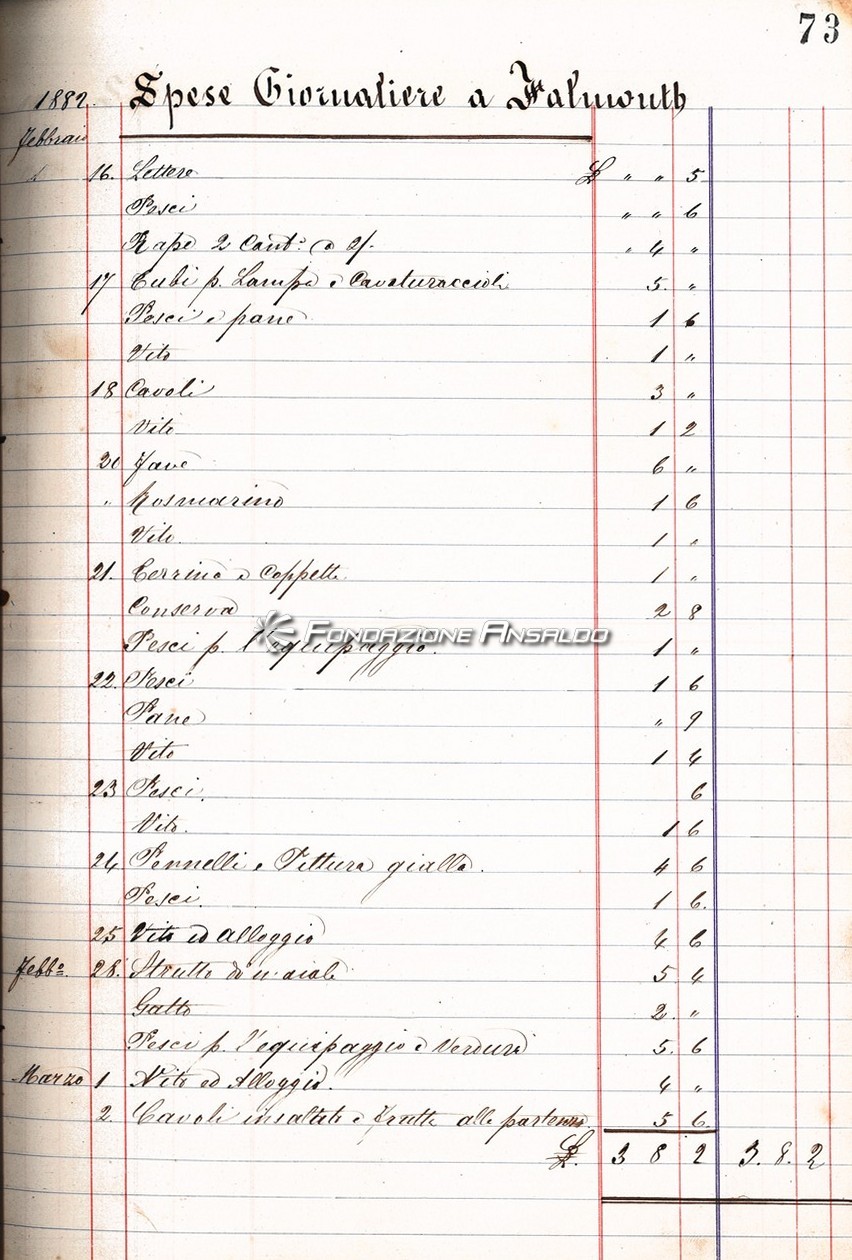 73
1882. Spese Giornaliere a Falmouth
Febbraio
16. Lettere £ " " 5
Pesci " " 6
Rape 2 Cant.i a 2/- " 4 "
17 Tubi p. Lampa e Cavaturaccioli 5. "
Pesci e pane 1 6
Vito 1 "
18 Cavoli 3 "
Vito 1 2
20 Fave 6 "
" Rosmarino 1 6
Vito. 1 "
21. Cerrino e Coppette 1 "
Conserva 2 8
FONDAZIONE ANSALDO
Pesci p. l'equipaggio. 1 "
22. Pesci 1 6
Pane " 9
Vito 1 4
23 Pesci. 6
Vito. 1 6
24 Pennelli e Pittura gialla. 4 6
Pesci. 1 6.
25 Vito ed alloggio 4 6
Febb.o 28. Strutto di maiale 5. 4
Gatto 2. "
Pesci p. l'equipaggio e Verdura 5. 6
Marzo 1 Vito ed Alloggio. 4 "
2. Cavoli insalate e frutta alla partenza 5 6
£. 3 8 2 3. 8. 2